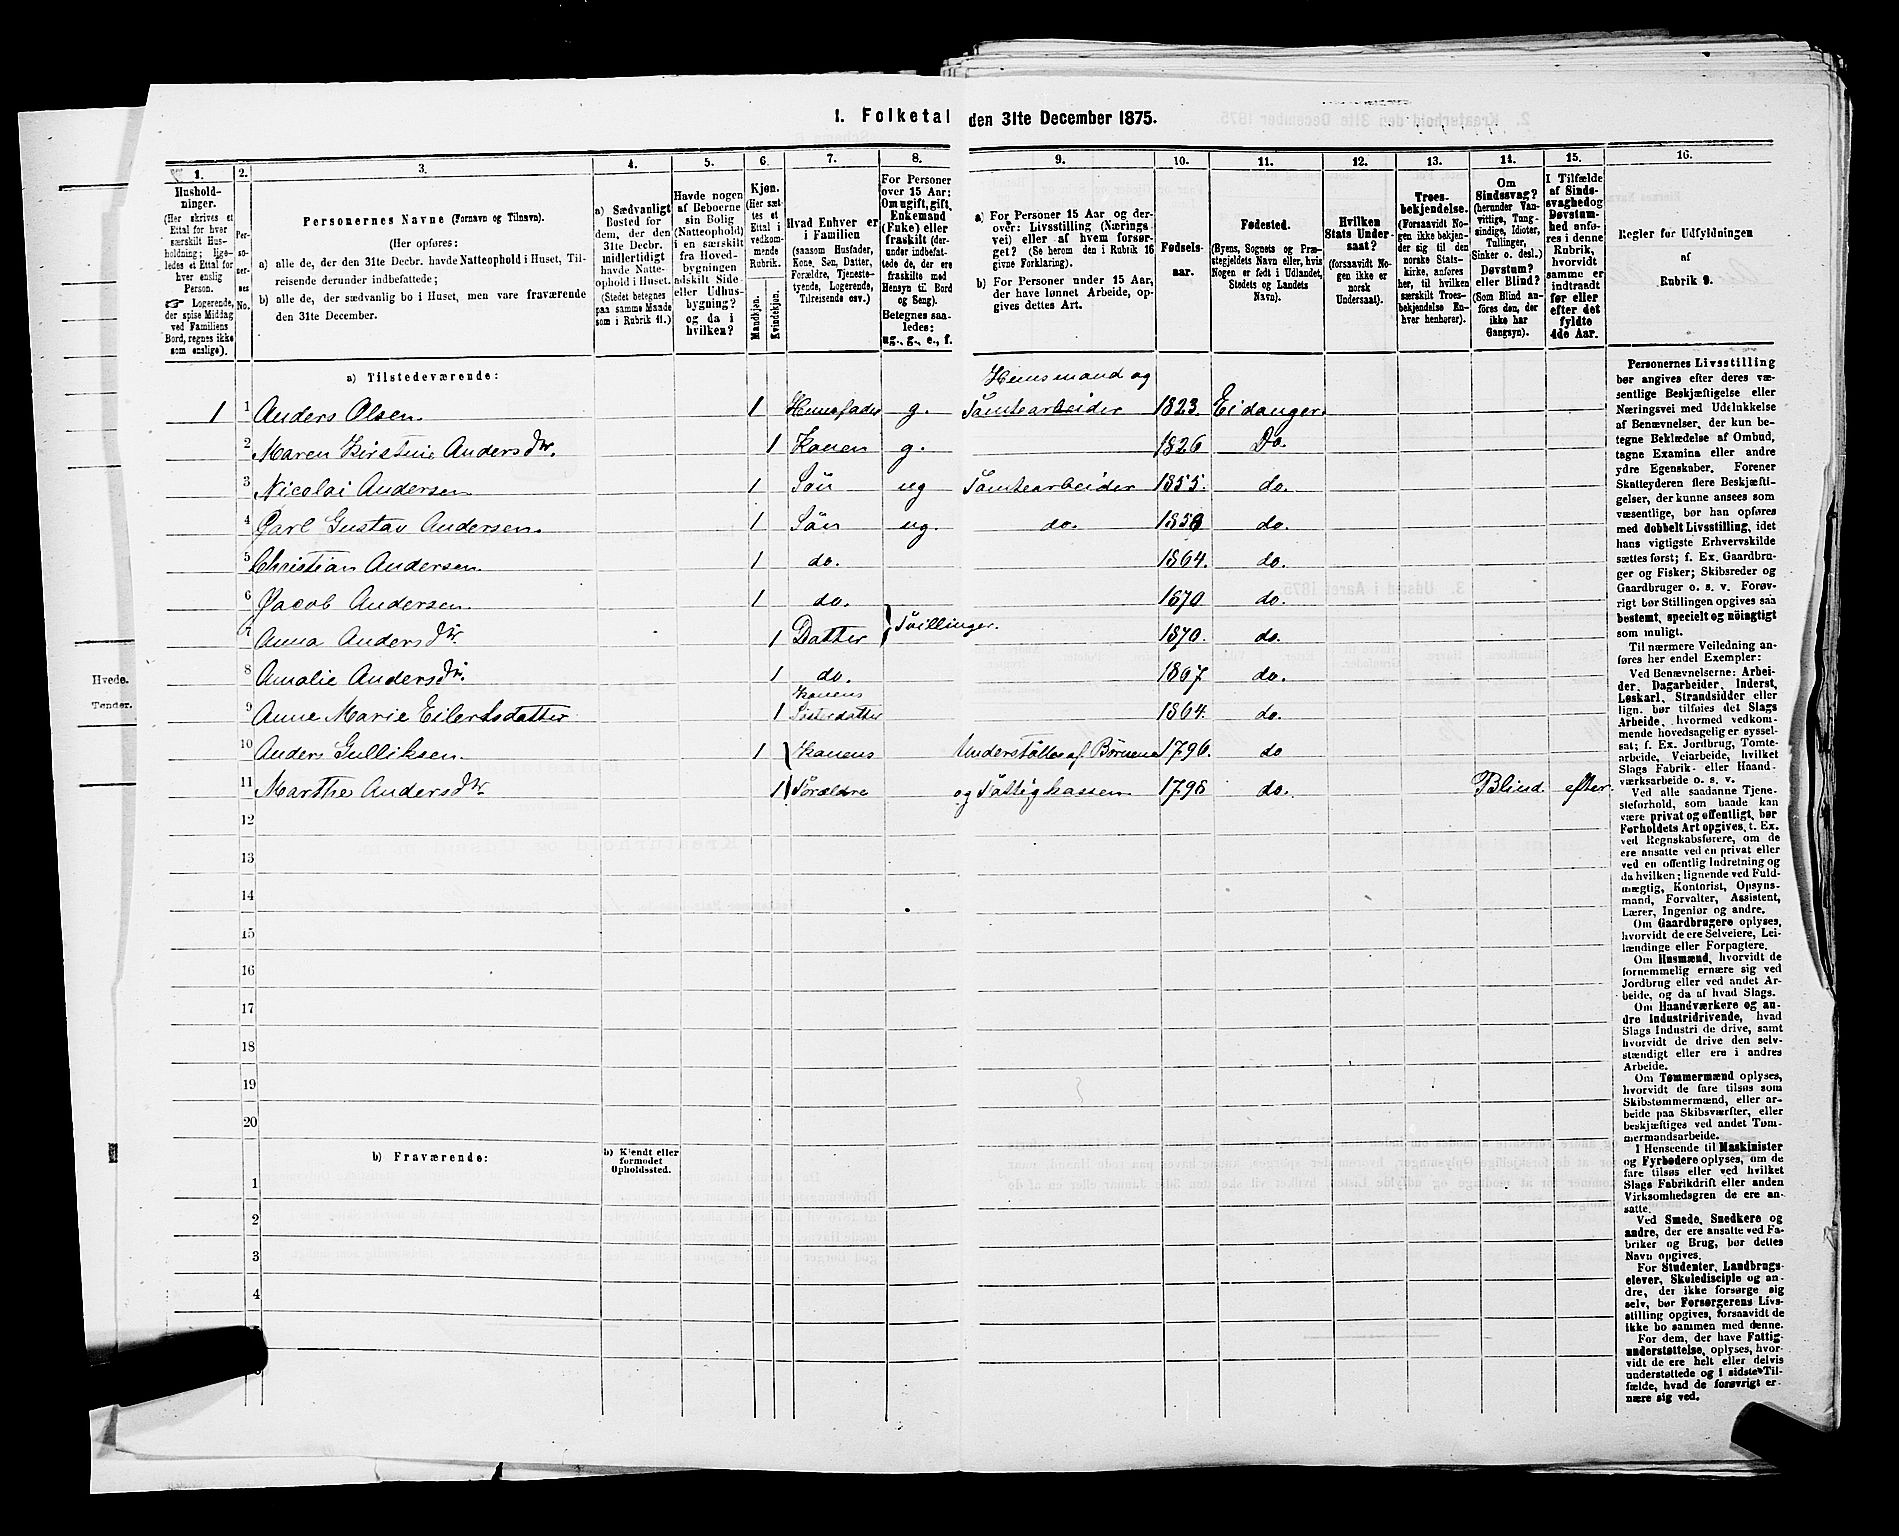 1. Folketal den 31te December 1875.
1.
Hushold-
ninger.
(Her skrives et
Ettal for hver
særskilt Hus-
holdning; lige-
ledes et Ettal for
hver enslig
Person.
☞ Logerende,
der spise Middag
ved Familiens
Bord, regnes ikke
som enslige).
2.
Per-
so-
ner-
nes
No.
3.
Personernes Navne (Fornavn og Tilnavn).
(Her opføres:
a) alle de, der den 31te Decbr. havde Natteophold i Huset, Til-
reisende derunder indbefattede;
b) alle de, der sædvanlig bo i Huset, men vare fraværende
den 31te December.
4.
a) Sædvanligt
Bosted for
dem, der den
31te Decbr.
midlertidigt
havde Natte-
ophold i Huset.
(Stedet betegnes
paa samme Maade
som i Rubrik 11.)
5.
Havde nogen
af Beboerne
sin Bolig
(Natteophold)
i en særskilt
fra Hoved-
bygningen
adskilt Side-
eller Udhus-
bygning?
og da i
hvilken?
6.
Kjøn.
(Her sæt-
tes et
Ettal i
vedkom-
mende
Rubrik.
Mandkjøn.
Kvindekjøn.
7.
Hvad Enhver er
i Familien
(saasom Husfader,
Kone, Søn, Datter,
Forældre, Tjeneste-
tyende, Logerende,
Tilreisende osv.)
8.
For Personer
over 15 Aar:
Om ugift, gift,
Enkemand
(Enke) eller
fraskilt (der-
under indbefat-
tede de, der ere
fraskilte med
Hensyn til Bord
og Seng).
Betegnes saa-
ledes:
ug., g., e., f.
9.
a) For Personer 15 Aar og der-
over: Livsstilling (Nærings-
vei) eller af hvem forsør-
get? (Se herom den i Rubrik 16
givne Forklaring).
b) For Personer under 15 Aar,
der have lønnet Arbeide, op-
gives dettes Art.
10.
Fødsels-
aar.
11.
Fødested.
(Byens, Sognets og Præ-
stegjeldets Navn eller, hvis
Nogen er født i Udlandet,
Stedets og Landets
Navn).
12.
Hvilken
Stats Under-
saat?
(forsaavidt No-
gen ikke er
norsk
Undersaat).
13.
Troes-
bekjendelse.
(Forsaavidt No-
gen ikke bekjen-
der sig til den
norske Stats-
kirke, anføres
her, til hvilken
særskilt Troes-
bekjendelse En-
hver henhører).
14.
Om
Sindssvag?
(herunder Van-
vittige, Tung-
sindige, Idioter,
Tullinger,
Sinker o. desl.)
Døvstum?
eller Blind?
(Som Blind an-
føres den, der
ikke har
Gangsyn).
15.
I Tilfælde
af Sinds-
svaghed og
Døvstum-
hed anfø-
res i denne
Rubrik,
hvorvidt
samme er
indtraadt
før eller
efter det
fyldte
4de Aar.
16.
Regler før Udfyldningen
af
Rubrik 9.
a) Tilstedeværende:
Husmand og
1 1 Anders Olsen. 1 Husfader g. Tomtearbeider 1823. Eidanger.
2 Maren Kirstine Andersdtr. 1 Konen g. 1826 Do.
3 Nicolai Andersen 1 Søn ug Tomtearbeider 1855. do.
4 Carl Gustav Andersen. 1 Søn ug. do. 1858 do.
5 Christian Andersen. 1 do. 1864. do.
6 Jacob Andersen. 1 do. 1870 do.
Tvillinger.
7 Anna Andersdtr. 1 Datter 1870. do.
8 Amalie Andersdtr. 1 do. 1867 do.
9 Anne Marie Eilertsdatter 1 Konens Søsterdatter 1864. do.
10 Anders Gulliksen. 1 Konens Understøttes af Børnene 1796. do
11 Marthe Andersdtr. 1 Forældre og Fattigkassen 1798 do. Blind efter.
12
13
14
15
16
17
18
19
20
b) Fraværende:
b) Kjendt eller
formodet
Opholdssted.
1
2
3
4
Personernes Livsstilling
bør angives efter deres væ-
sentlige Beskjæftigelse eller
Næringsvei med Udelukkelse
af Benævnelser, der kun be-
tegne Beklædelse af Ombud,
tagne Examina eller andre
ydre Egenskaber. Forener
Skatteyderen flere Beskjæfti-
gelser, der kunne ansees som
væsentlige, bør han opføres
med dobbelt Livsstilling, idet
hans vigtigste Erhvervskilde
sættes først; f. Ex. Gaardbru-
ger og Fisker; Skibsreder og
Gaardbruger o. s. v. Forøv-
rigt bør Stillingen opgives saa
bestemt, specielt og nøiagtigt
som muligt.
Til nærmere Veiledning an-
føres her endel Exempler:
Ved Benævnelserne: Arbei-
der, Dagarbeider, Inderst,
Løskarl, Strandsidder eller
lign. bør tilføies det Slags
Arbeide, hvormed vedkom-
mende hovedsagelig er syssel-
sat; f. Ex. Jordbrug, Tomte-
arbeide, Veiarbeide, hvilket
Slags Fabrik- eller Haand-
værksarbeide o. s. v.
Ved alle saadanne Tjene-
steforhold, som baade kan
være privat og offentligt, bør
Forholdets Art opgives, t. Ex.
ved Regnskabsførere, om de
ere ansatte ved en privat eller
ved en offentlig Indretning og
da hvilken; lignende ved Fuld-
mægtig, Kontorist, Opsyns-
mand, Forvalter, Assistent,
Lærer, Ingeniør og andre.
Om Gaardbrugere oplyses,
hvorvidt de ere Selveiere, Lei-
lændinge eller Forpagtere.
Om Husmænd, hvorvidt de
fornemmelig ernære sig ved
Jordbrug eller ved andet Ar-
beide, og da af hvad Slags.
Om Haandværkere og an-
dre Industridrivende, hvad
Slags Industri de drive, samt
hvorvidt de drive den selv-
stændigt eller ere i andres
Arbeide.
Om Tømmermænd oplyses,
hvorvidt de fare tilsøs som
Skibstømmermænd, eller ar-
beide paa Skibsværfter, eller
beskjæftiges ved andet Tøm-
mermandsarbeide.
I Henseende til Maskinister
og Fyrbødere oplyses, om de
fare tilsøs eller ved hvilket
Slags Fabrikdrift eller anden
Virksomhedsgren de ere an-
satte.
Ved Smede, Snedkere og
andre, der ere ansatte ved Fa-
briker og Brug, bør dettes
Navn opgives.
For Studenter, Landbrugs-
elever, Skoledisciple og an-
dre, der ikke forsørge sig
selv, bør Forsørgerens Livs-
stilling opgives, forsaavidt de
ikke bo sammen med denne.
For dem, der have Fattig-
understøttelse, oplyses, hvor-
vidt de ere helt eller delvis
understøttede og i sidste Til-
fælde, hvad de forøvrigt er-
nære sig ved.
Hvede.
Tønder.